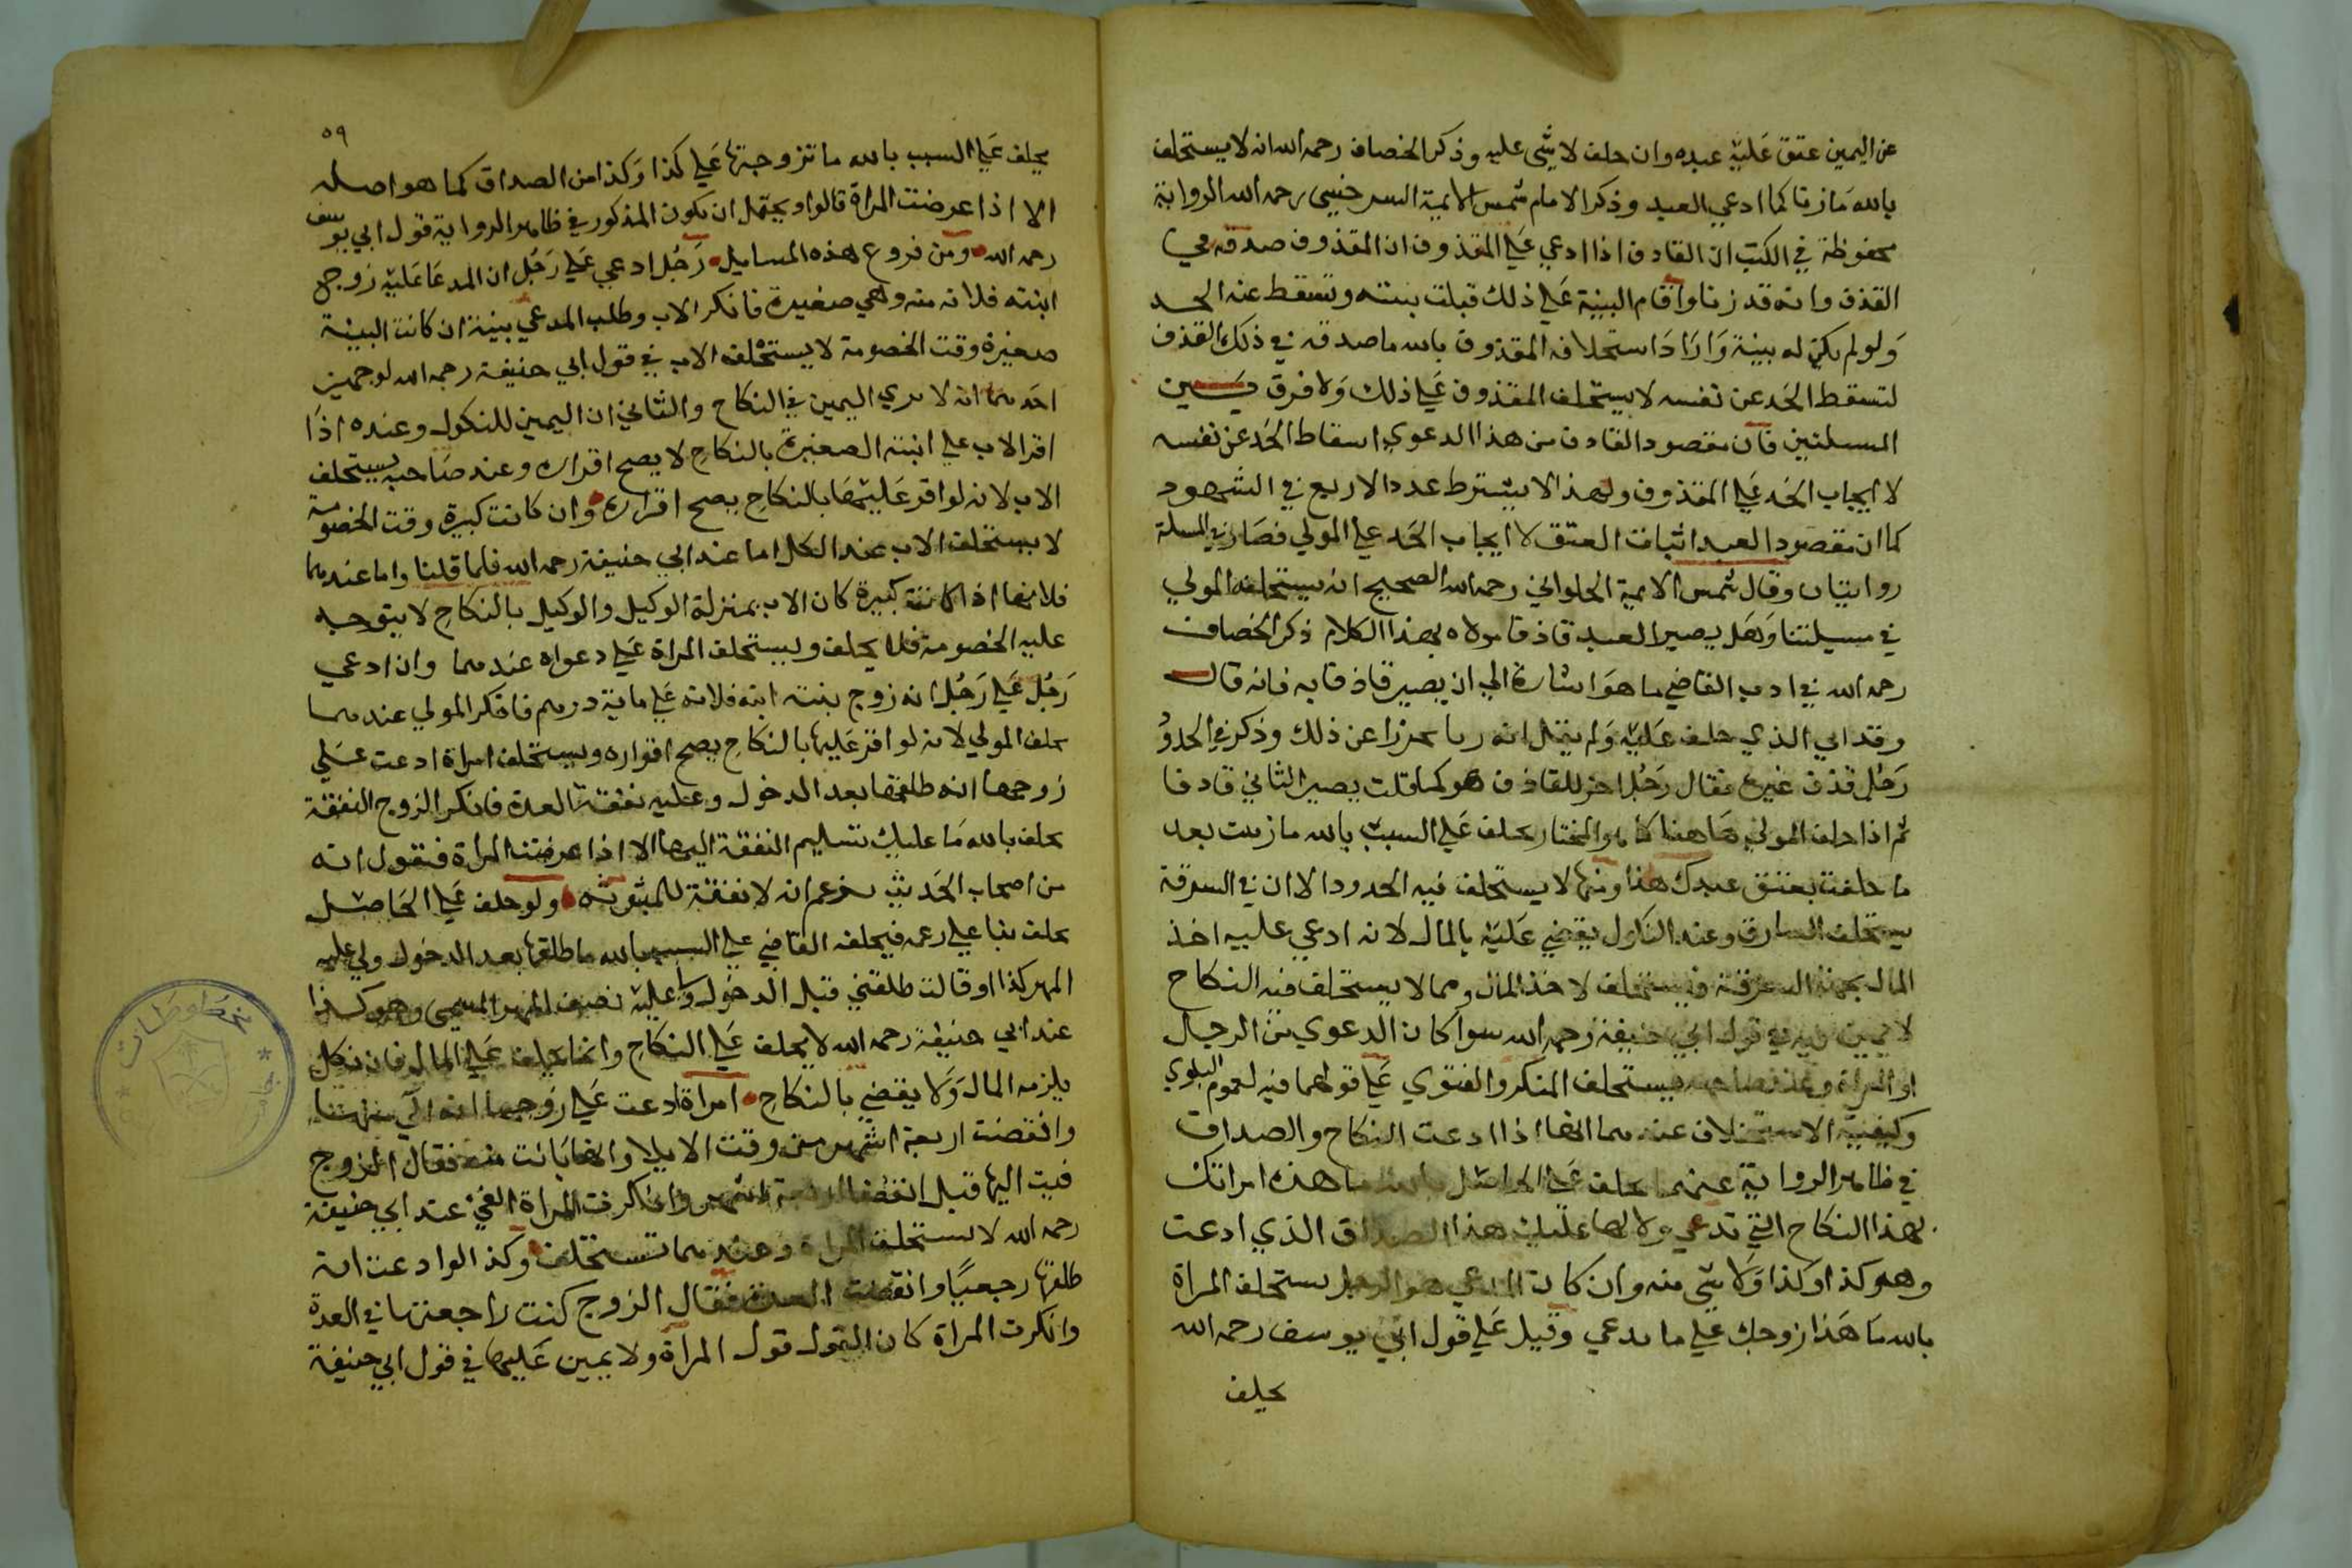 عن اليمين عتق عليه عبده وان حلف لا شى عليه وذكر الخصاف رحمه الله انه لا يستحلف
بالله ما زنا كما ادعي العبد وذكر الامام شمس الايمة السرخسي رحمه الله الرواية
محفوظة في الكتب ان القاذف اذا ادعي علي المقذوف ان المقذوف صدقه في
القذف وانه قد زنا واقام البينة علي ذلك قبلت بينته وتسقط عنه الحد
ولو لم يكن له بينة واراد استحلاف المقذوف بالله ما صدقه في ذلك القذف
لتسقط الحد عن نفسه لا يستحلف المقذوف علي ذلك ولا فرق بين
المسلتين فان مقصود القاذف من هذا الدعوي اسقاط الحد عن نفسه
لا ايجاب الحد علي المقذوف ولهذا لا يشترط عدد الاربع في الشهود
كما ان مقصود العبد اثبات العتق لا ايجاب الحد علي المولي فصار في المسلة
روايتان وقال شمس الايمة الحلواني رحمه الله الصحيح انه يستحلف المولي
في مسيلتنا وهل يصير العبد قاذفا مولاه بهذا الكلام ذكر الخصاف
رحمه الله في ادب القاضي ما هو اشارة الي ان يصير قاذفا به فانه قال
وقد اتي الذي حلف عليه ولم يقل انه زنا تحرزا عن ذلك وذكر في الحدود
رجل قذف غيره فقال رجل اخر للقاذف هو كما قلت يصير الثاني قاذفا
ثم اذا حلف المولي هاهنا كما هو المختار يحلف علي السبب بالله ما زنيت بعد
ما حلفت بعتق عبدك هذا ومنها لا يستحلف فيه الحدود الا ان في السرقة
يستحلف السارق وعند النكول يقضي عليه بالمال لانه ادعي عليه اخذ
المال بجهة السرقة فيستحلف لاخذ المال ومما لا يستحلف فيه النكاح
لا يمين فيه في قول ابي حنيفة رحمه الله سوا كان الدعوي من الرجال
او المراة وعند صاحبيه يستحلف المنكر والفتوي علي قولهما فيه لعموم البلوي
وكيفية الاستحلاف عندهما انها اذا ادعت النكاح والصداق
في ظاهر الرواية عنهما يحلف علي الحاصل بالله ما هذه امراتك
بهذا النكاح التي تدعي ولا لها عليك هذا الصداق الذي ادعت
وهو كذا وكذا ولا شى منه وان كان المدعي هو الرجل يستحلف المراة
بالله ما هذا زوجك علي ما يدعي وقيل علي قول ابي يوسف رحمه الله
يحلف
٥٩
يحلف علي السبب بالله ما تزوجتها علي كذا وكذا من الصداق كما هو اصله
الا اذا عرضت المراة قالوا ويحتمل ان يكون المذكور في ظاهر الرواية قول ابي يوسف
رحمه الله ومن فروع هذه المسايل رجل ادعي علي رجل ان المدعا عليه زوج
ابنته فلانه منه وهي صغيرة فانكر الاب وطلب المدعي بينة ان كانت البينة
صغيرة وقت الخصومة لا يستحلف الاب في قول ابي حنيفة رحمه الله لوجهين
احدهما انه لا يري اليمين في النكاح والثاني ان اليمين للنكول وعنده اذا
اقر الاب علي ابنته الصغيرة بالنكاح لا يصح اقراره وعند صاحبيه يستحلف
الاب لانه لو اقر عليها بالنكاح يصح اقراره وان كانت كبيرة وقت الخصومة
لا يستحلف الاب عند الكل اما عند ابي حنيفة رحمه الله فلما قلنا واما عندهما
فلانها اذا كانت كبيرة كان الاب بمنزلة الوكيل والوكيل بالنكاح لا يتوجه
عليه الخصومة فلا يحلف ويستحلف المراة علي دعواه عندهما وان ادعي
رجل علي رجل انه زوج بنته ابنه فلانه علي ماية درهم فانكر المولي عندهما
يحلف المولي لانه لو اقر عليها بالنكاح يصح اقراره ويستحلف امراة ادعت علي
زوجها انه طلقها بعد الدخول وعليه نفقة العدة فانكر الزوج النفقة
يحلف بالله ما عليك تسليم النفقة اليها الا اذا عرضت المراة فتقول انه
من اصحاب الحديث يزعم ان لا نفقة للمبتوتة ولو حلف علي الحاصل
يحلف بنا علي زعمه فيحلفه القاضي علي السبب بالله ما طلقها بعد الدخول ولي عليه
المهر كذا او قالت طلقني قبل الدخول ولي عليه نصف المهر المسمي وهو كذا
عند ابي حنيفة رحمه الله لا يحلف علي النكاح وانما يحلف علي المال فان نكل
يلزمه المال ولا يقضي بالنكاح امراة ادعت علي زوجها انه آلي منها
وانقضت اربعة اشهر من وقت الايلا وانها بانت منه فقال الزوج
فيت اليها قبل انقضا اربعة اشهر وانكرت المراة الفي عند ابي حنيفة
رحمه الله لا يستحلف المراة وعندهما تستحلف وكذا لو ادعت انه
طلقها رجعيا وانقضت العدة فقال الزوج كنت راجعتها في العدة
وانكرت المراة كان القول قول المراة ولا يمين عليها في قول ابي حنيفة
مخطوطات